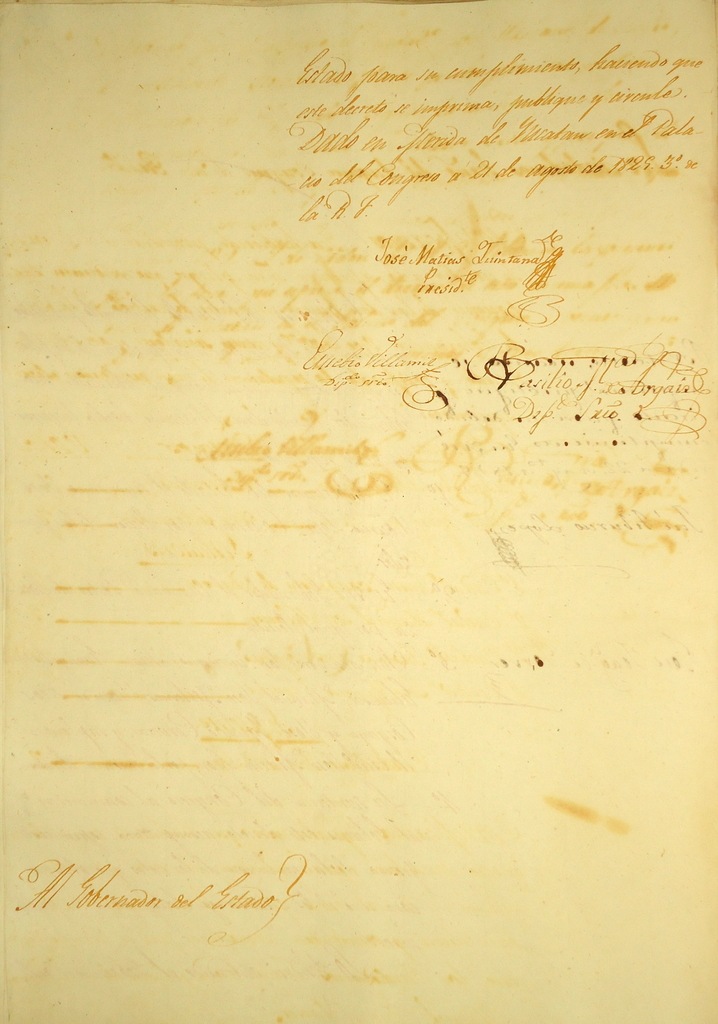 Estado para su cumplimiento, haciendo que
este decreto se imprima, publique y circule.
Dado en Merida de Yucatan en el Pala-
cio del Congreso a 21 de agosto de 1825. 3º. de
la R. F.
José Matias Quintana
Presid.te
Eusebio Villamil
Dip.do srio.
Basilio M.
Dip.do Srio.
Al Gobernador del Estado.